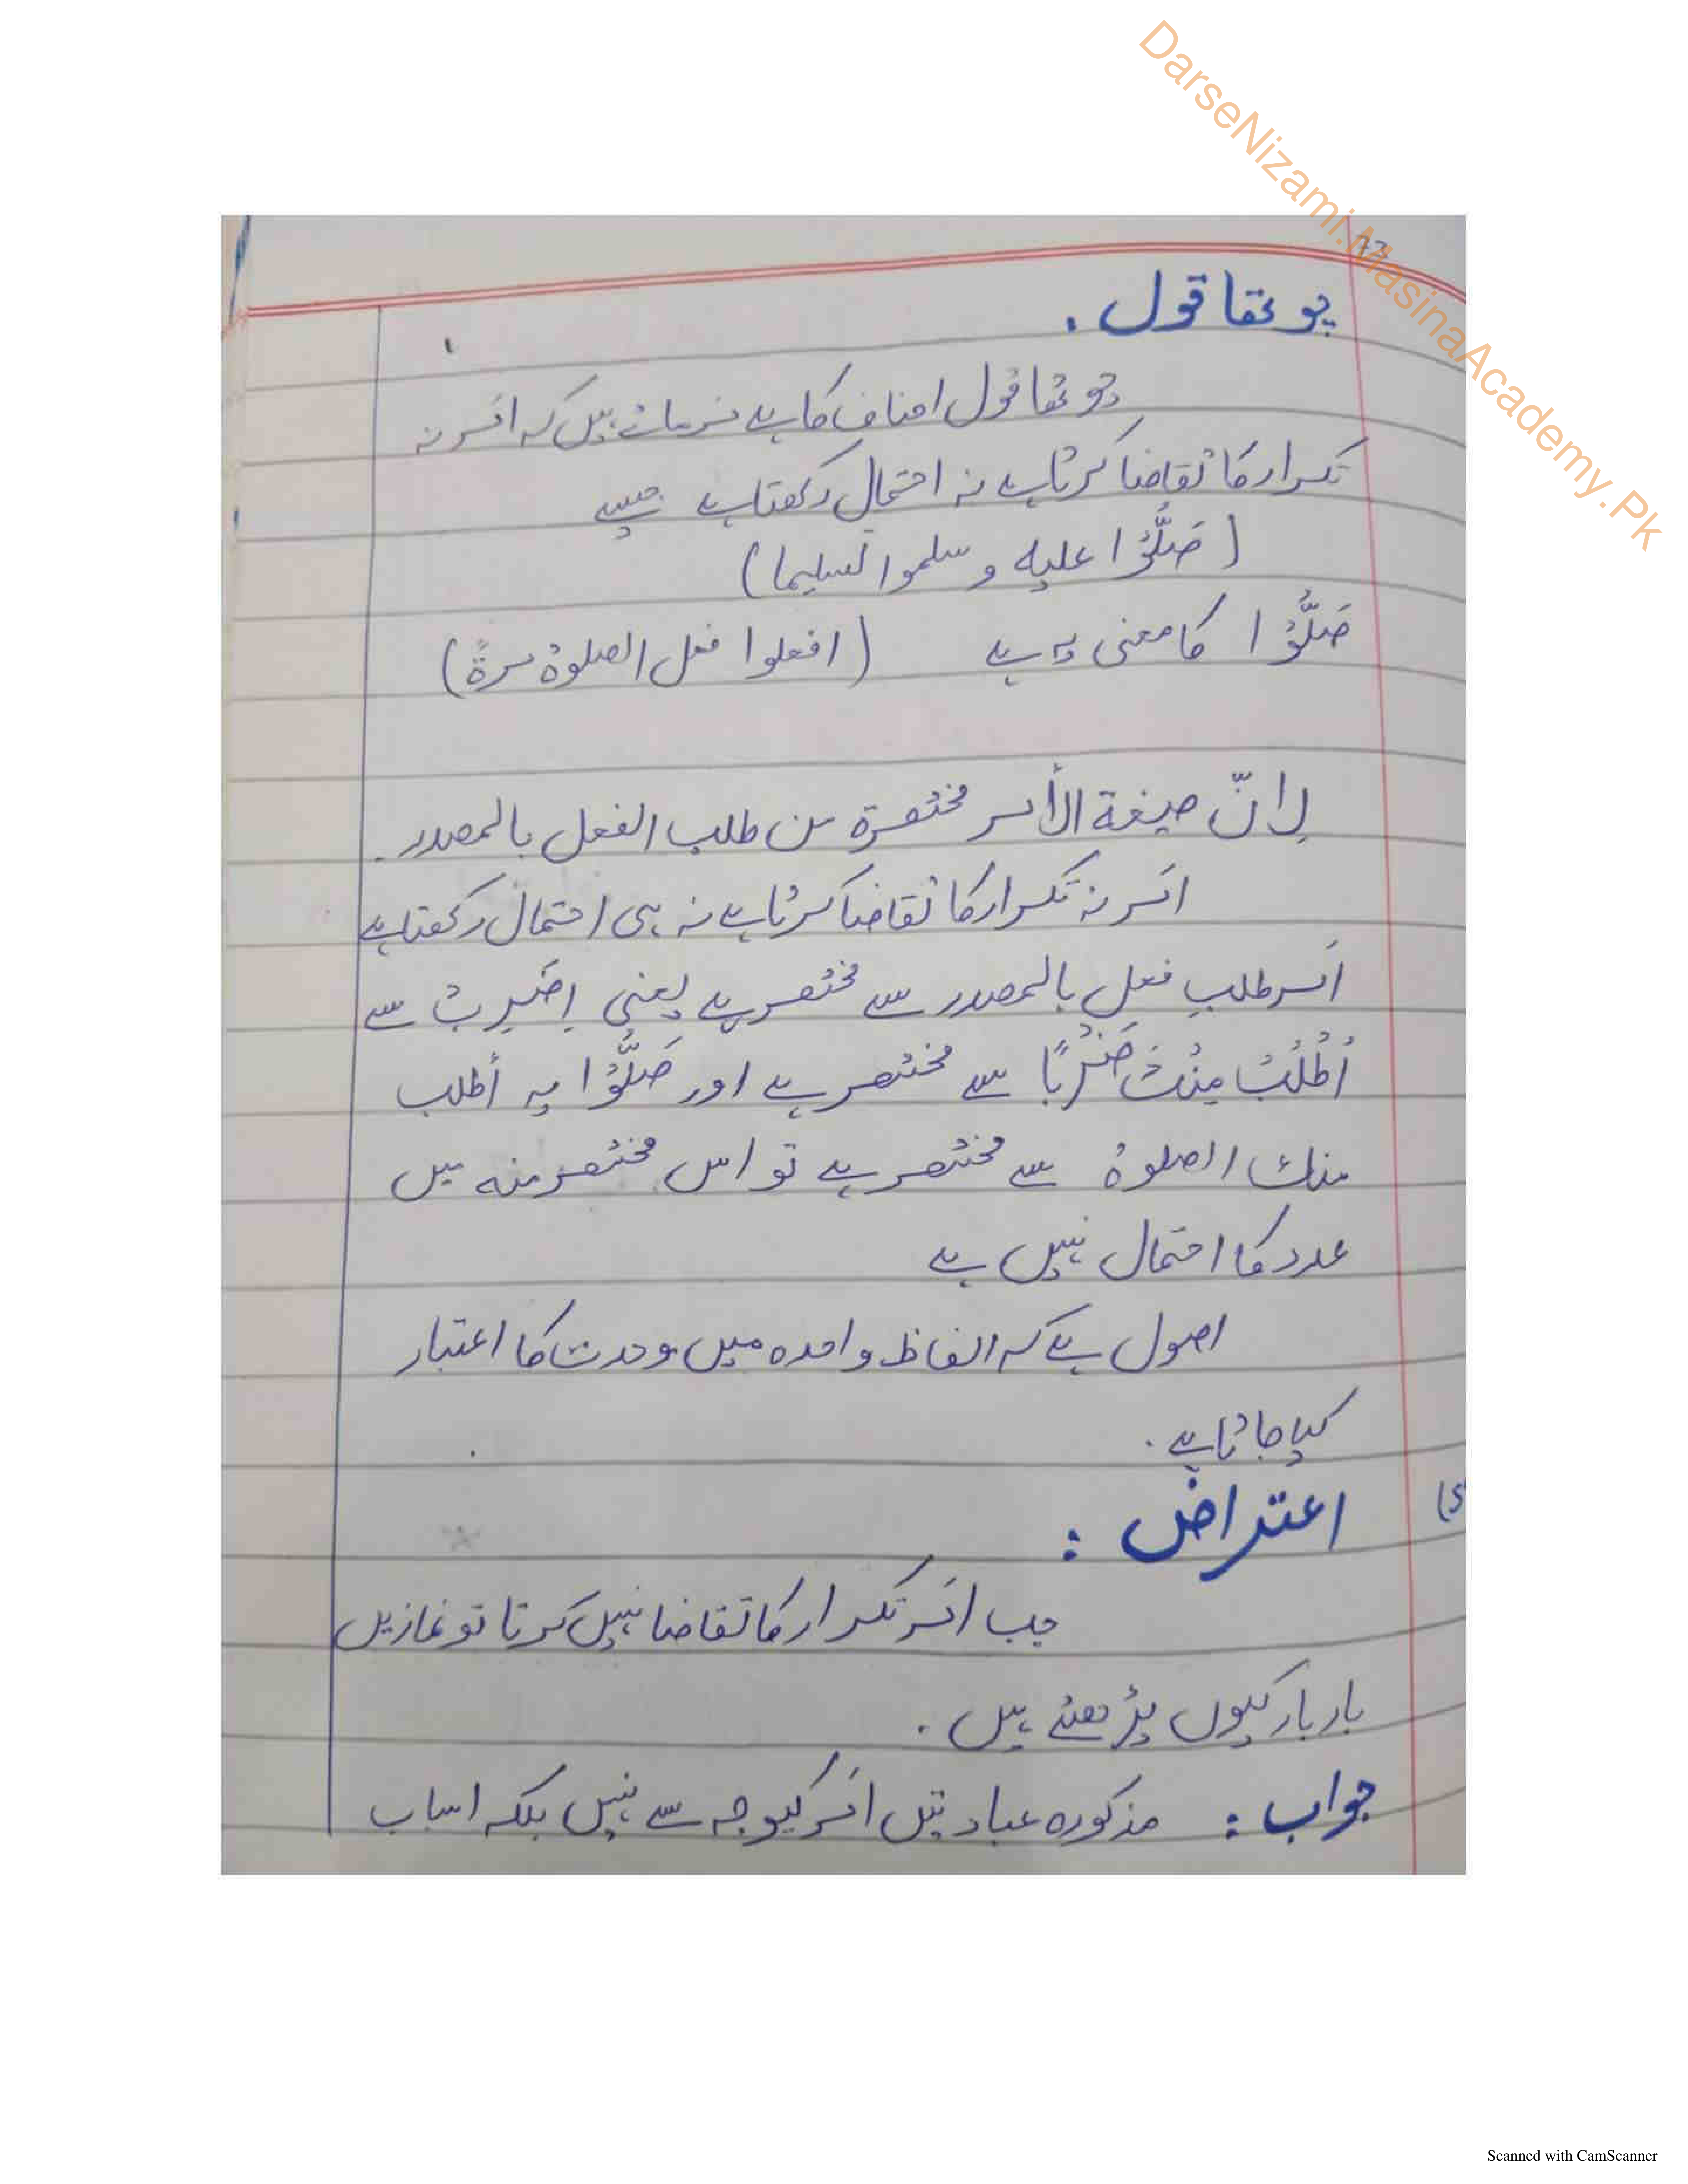 DarseNizami.MasinaAcademy.Pk
73
چوتھا قول .
چوتھا قول احناف کا ہے فرماتے ہیں کہ امر نہ
تکرار کا تقاضا کرتا ہے نہ احتمال رکھتا ہے جیسے
(صَلُّوْا علیہ و سلموا تسلیما)
صَلُّوْا کا معنی یہ ہے (افعلوا فعل الصلوۃ مرۃً)
لِانّ صیغة الأمر مختصرة من طلب الفعل بالمصدر .
امر نہ تکرار کا تقاضا کرتا ہے نہ ہی احتمال رکھتا ہے
امر طلبِ فعل بالمصدر سے مختصر ہے یعنی اِضْرِبْ سے
اُطْلُبُ مِنْكَ ضَرْبًا سے مختصر ہے اور صَلُّوْا یہ أطلب
منك الصلوۃ سے مختصر ہے تو اس مختصر منہ میں
عدد کا احتمال نہیں ہے
اصول ہے کہ الفاظ واحدہ میں وحدت کا اعتبار
کیا جاتا ہے .
اعتراض :
جب امر تکرار کا تقاضا نہیں کرتا تو نمازیں
بار بار کیوں پڑھتے ہیں .
جواب : مذکورہ عبادتیں امر کیوجہ سے نہیں بلکہ اسباب
Scanned with CamScanner